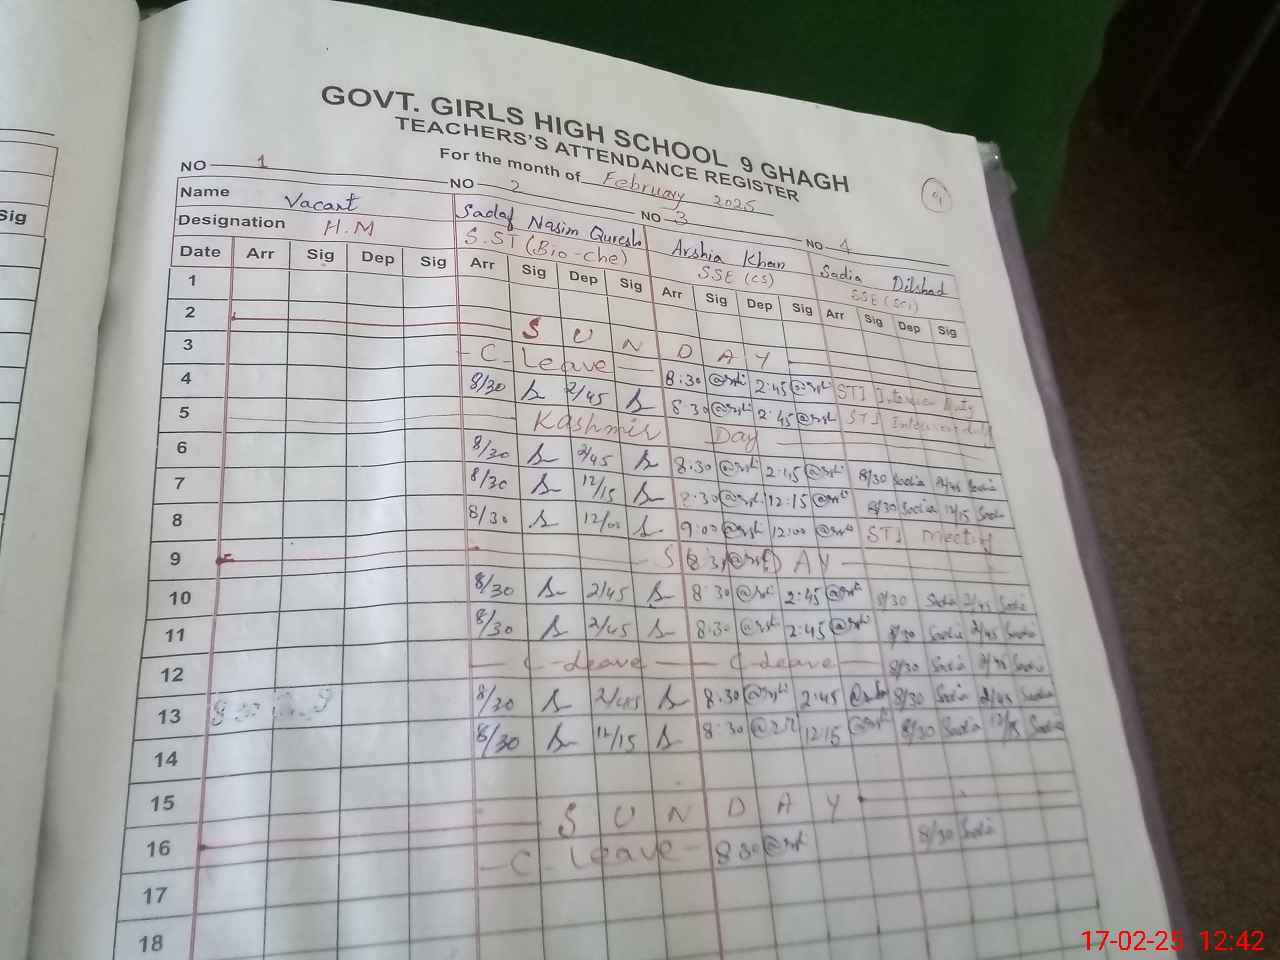 Sig
GOVT. GIRLS HIGH SCHOOL 9 GHAGH
TEACHERS'S ATTENDANCE REGISTER
For the month of February 2025
9
NO 1 NO 2 NO 3 NO 4
Name Vacant Sadaf Nasim Qureshi Arshia Khan Sadia Dilshad
Designation H.M S.ST (Bio-che) SSE (CS) SSE (Sci)
Date Arr Sig Dep Sig Arr Sig Dep Sig Arr Sig Dep Sig Arr Sig Dep Sig
1
2 S U N D A Y
3 C-Leave 8:30 2:45 STI Interview Duty
4 8/30 2/45 8:30 2:45 STI
5 Kashmir Day
6 8/30 2/45 8:30 2:45 8/30 Sadia 2/45 Sadia
7 8/30 12/15 8:30 12:15 8/30 Sadia 12/15 Sadia
8 8/30 12/00 9:00 12:00 STI meeting
9 S D A Y
10 8/30 2/45 8:30 2:45 8/30 Sadia 2/45 Sadia
11 8/30 2/45 8:30 2:45 8/30 Sadia 2/45 Sadia
12 C-Leave C-Leave 8/30 Sadia 2/45 Sadia
13 8/30 2/45 8:30 2:45 8/30 Sadia 2/45 Sadia
14 8/30 12/15 8:30 12:15 8/30 Sadia 12/15 Sadia
15
16 S U N D A Y
17 C-Leave 8:30 8/30 Sadia
18
17-02-25 12:42